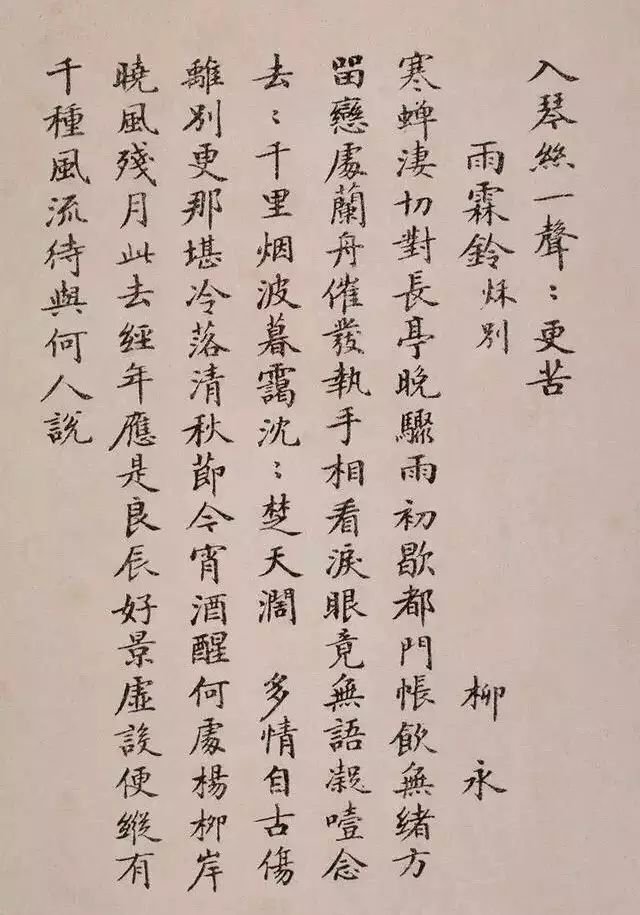 入琴絲一聲﹕更苦
雨霖鈴 秌別 柳永
寒蟬淒切對長亭晚驟雨初歇都門帳飲無緒方
留戀處蘭舟催發執手相看淚眼竟無語凝噎念
去﹕千里烟波暮靄沈﹕楚天濶 多情自古傷
離別更那堪冷落清秋節今宵酒醒何處楊柳岸
曉風殘月此去經年應是良辰好景虛設便縱有
千種風流待與何人說